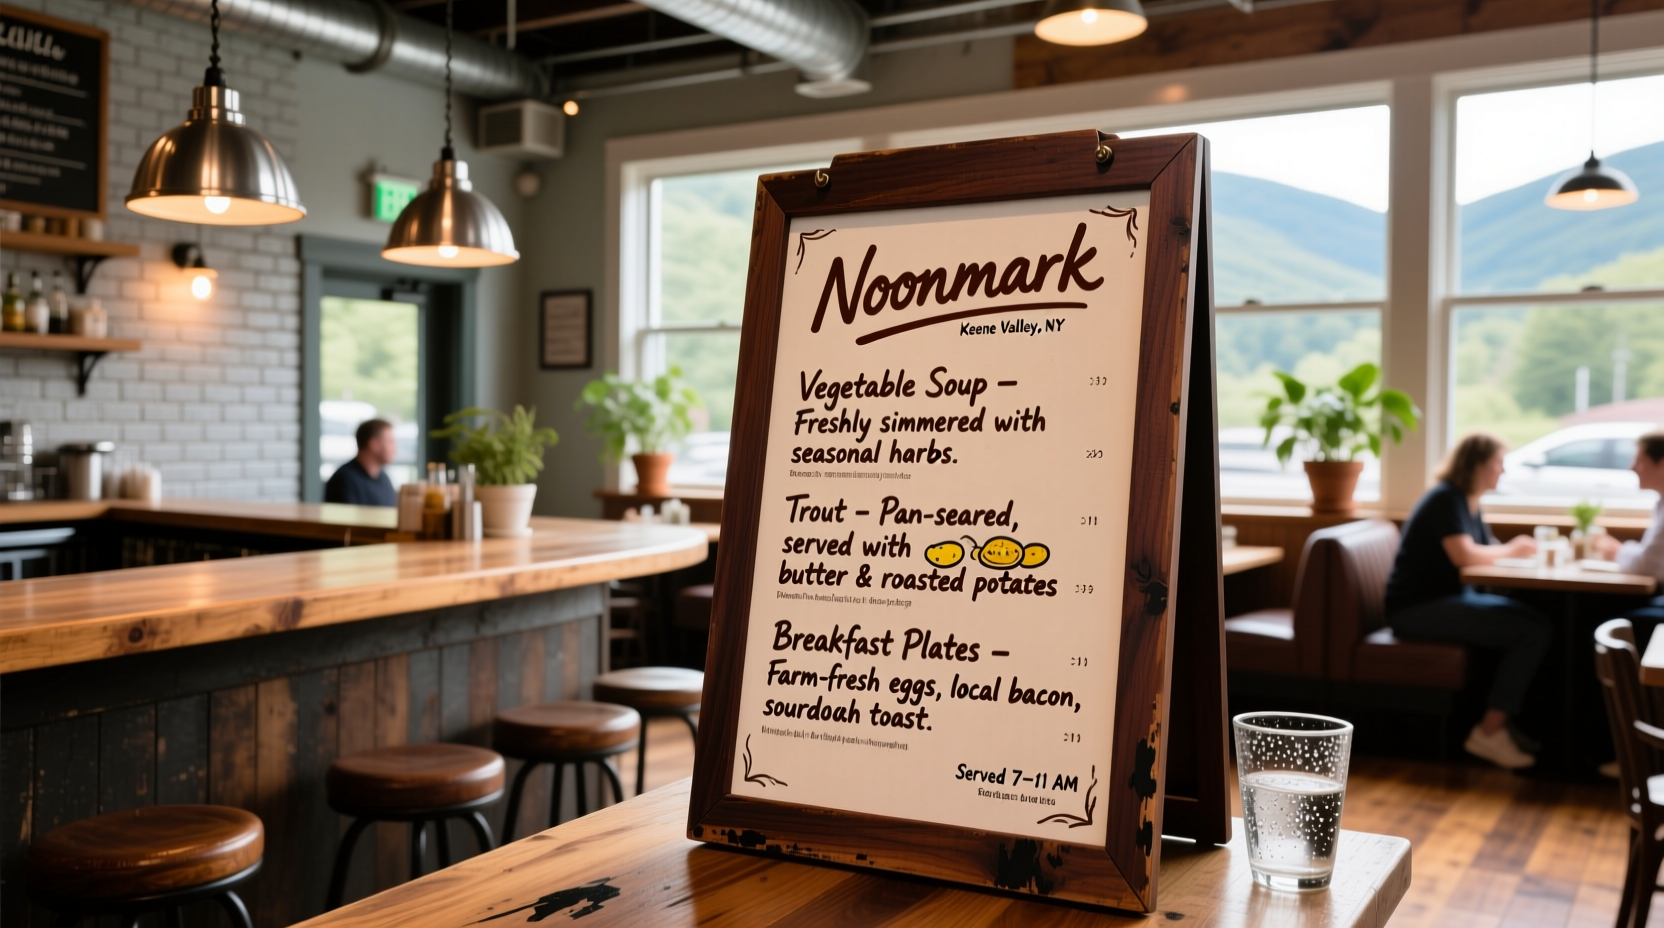 Noonmark
Keene Valley, NY
Vegetable Soup –
Freshly simmered with
seasonal harbs.
Trout – Pan-seared,
served with
butter & roasted potates
Breakfast Plates –
Farm-fresh eggs, local bacon,
sourdoah toast.
Served 7–11 AM